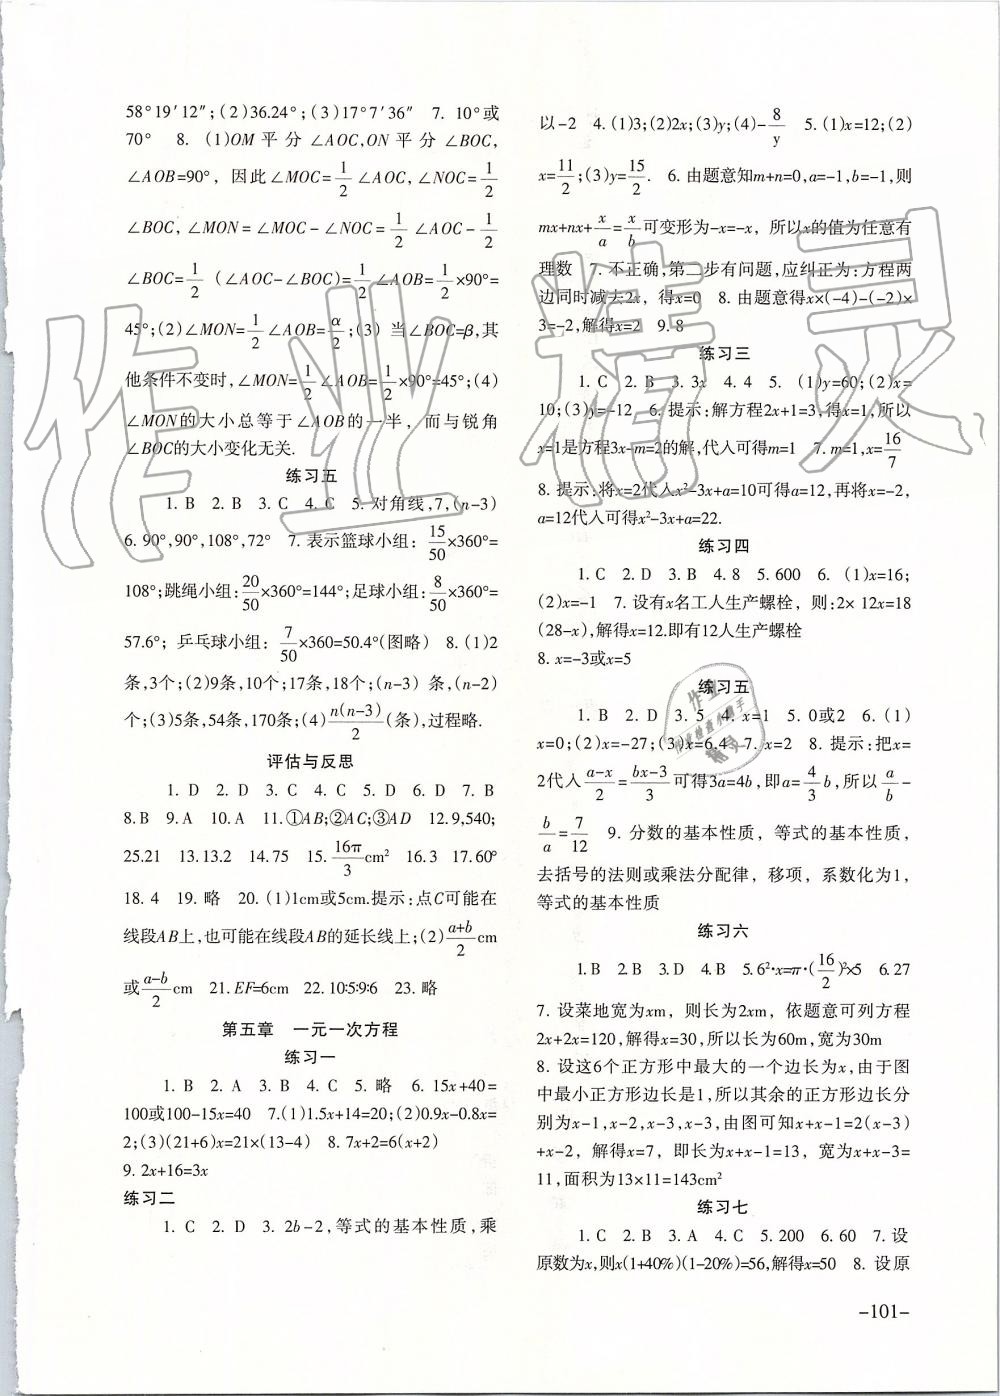 58°19′12″;(2)36.24°;(3)17°7′36″ 7. 10°或
70° 8. (1)OM平分∠AOC,ON平分∠BOC,
∠AOB=90°，因此∠MOC=1/2∠AOC,∠NOC=1/2
∠BOC,∠MON=∠MOC-∠NOC=1/2∠AOC-1/2
∠BOC=1/2（∠AOC-∠BOC)=1/2∠AOB=1/2×90°=
45°;(2)∠MON=1/2∠AOB=α/2;(3)当∠BOC=β,其
他条件不变时,∠MON=1/2∠AOB=1/2×90°=45°;(4)
∠MON的大小总等于∠AOB的一半，而与锐角
∠BOC的大小变化无关.
练习五
1. B 2. B 3. C 4. C 5. 对角线,7,(n-3)
6. 90°,90°,108°,72° 7. 表示篮球小组:15/50×360°=
108°;跳绳小组:20/50×360°=144°;足球小组:8/50×360°=
57.6°；乒乓球小组:7/50×360=50.4°(图略) 8. (1)2
条,3个;(2)9条,10个;17条,18个;(n-3)条,(n-2)
个;(3)5条,54条,170条;(4)n(n-3)/2(条),过程略.
评估与反思
1. D 2. D 3. C 4. C 5. D 6. D 7. B
8. B 9. A 10. A 11.①AB;②AC;③AD 12.9,540;
25.21 13.13.2 14.75 15.16π/3cm² 16.3 17.60°
18. 4 19. 略 20. (1)1cm或5cm.提示:点C可能在
线段AB上,也可能在线段AB的延长线上;(2)a+b/2cm
或a-b/2cm 21. EF=6cm 22. 10:5:9:6 23. 略
第五章 一元一次方程
练习一
1. B 2. A 3. B 4. C 5. 略 6. 15x+40=
100或100-15x=40 7.(1)1.5x+14=20;(2)0.9x-0.8x=
2;(3)(21+6)x=21×(13-4) 8. 7x+2=6(x+2)
9. 2x+16=3x
练习二
1. C 2. D 3. 2b-2,等式的基本性质,乘
以-2 4. (1)3;(2)2x;(3)y;(4)-8/y 5. (1)x=12;(2)
x=11/2;(3)y=15/2. 6. 由题意知m+n=0,a=-1,b=-1,则
mx+nx+x/a=x/b可变形为-x=-x，所以x的值为任意有
理数 7. 不正确,第二步有问题,应纠正为:方程两
边同时减去2x，得x=0 8. 由题意得x×(-4)-(-2)×
3=-2,解得x=2 9. 8
练习三
1. C 2. B 3. 3x 4. 4 5. (1)y=60;(2)x=
10;(3)y=-12 6. 提示:解方程2x+1=3,得x=1,所以
x=1是方程3x-m=2的解,代入可得m=1 7. m=1,x=16/7
8. 提示:将x=2代入x²-3x+a=10可得a=12,再将x=-2,
a=12代入可得x²-3x+a=22.
练习四
1. C 2. D 3. B 4. 8 5. 600 6. (1)x=16;
(2)x=-1 7. 设有x名工人生产螺栓，则:2×12x=18
(28-x),解得x=12.即有12人生产螺栓
8. x=-3或x=5
练习五
1. B 2. D 3. 5 4. x=1 5. 0或2 6. (1)
x=0;(2)x=-27;(3)x=6.4 7. x=2 8. 提示:把x=
2代入a-x/2=bx-3/3可得3a=4b,即a=4/3b,所以a/b-
b/a=7/12 9. 分数的基本性质，等式的基本性质，
去括号的法则或乘法分配律，移项，系数化为1,
等式的基本性质
练习六
1. B 2. B 3. D 4. B 5. 6²·x=π·(16/2)²×5 6. 27
7. 设菜地宽为xm，则长为2xm，依题意可列方程
2x+2x=120,解得x=30,所以长为60m,宽为30m
8. 设这6个正方形中最大的一个边长为x,由于图
中最小正方形边长是1,所以其余的正方形边长分
别为x-1,x-2,x-3,x-3,由图可知x+x-1=2(x-3)
+x-2，解得x=7，即长为x+x-1=13，宽为x+x-3=
11,面积为13×11=143cm²
练习七
1. C 2. B 3. A 4. C 5. 200 6. 60 7. 设
原数为x,则x(1+40%)(1-20%)=56,解得x=50 8. 设原
-101-
作业精灵